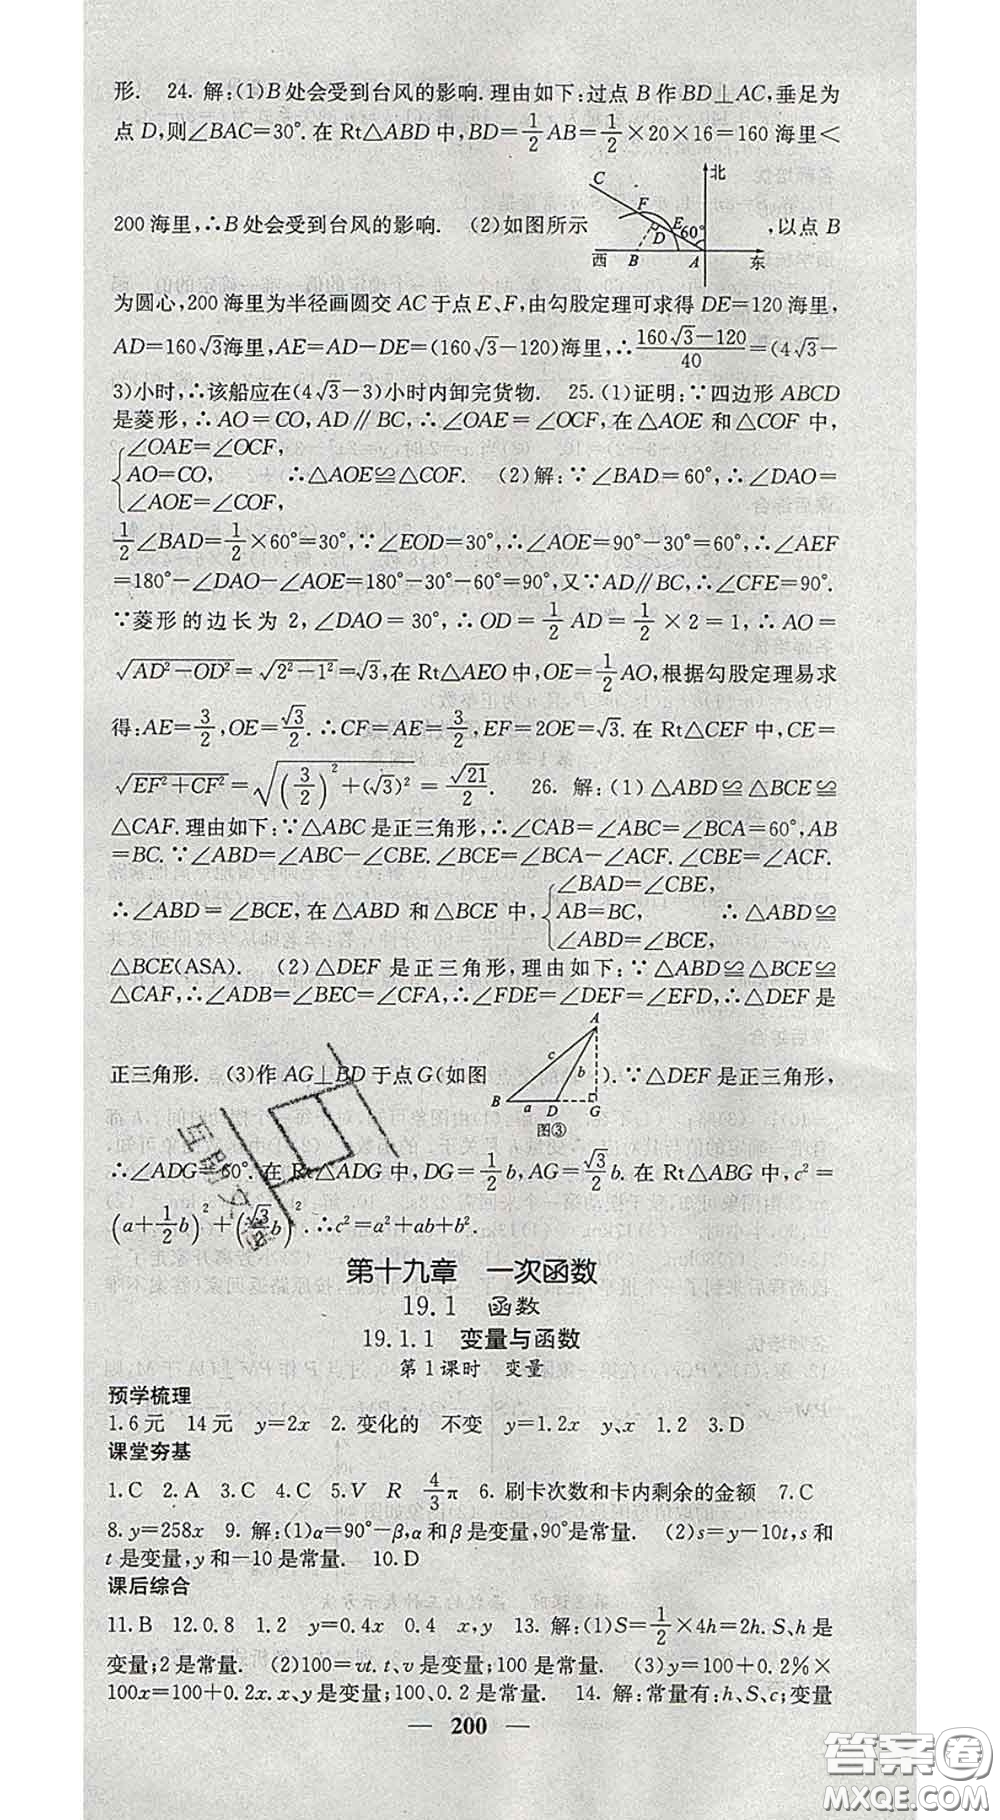 形.　24. 解:(1)B处会受到台风的影响.理由如下:过点 B 作 BD⊥AC,垂足为
点 D,则∠BAC=30°. 在 Rt△ABD 中,BD=1/2 AB=1/2×20×16=160 海里<
200 海里,∴B 处会受到台风的影响.　(2)如图所示
北
C
F
E
60°
D
西　B　A　东
,以点 B
为圆心,200 海里为半径画圆交 AC 于点 E、F,由勾股定理可求得 DE=120 海里,
AD=160√3海里,AE=AD-DE=(160√3-120)海里,∴(160√3-120)/40=(4√3-
3)小时,∴该船应在(4√3-3)小时内卸完货物.　25.(1)证明:∵四边形 ABCD
是菱形,∴AO=CO,AD∥BC,∴∠OAE=∠OCF,在△AOE 和△COF 中,
{∠OAE=∠OCF,
AO=CO,　∴△AOE≌△COF.　(2)解:∵∠BAD=60°,∴∠DAO=
∠AOE=∠COF,
1/2∠BAD=1/2×60°=30°,∵∠EOD=30°,∴∠AOE=90°-30°=60°,∴∠AEF
=180°-∠DAO-∠AOE=180°-30°-60°=90°,又∵AD∥BC,∴∠CFE=90°.
∵菱形的边长为 2,∠DAO=30°,∴OD=1/2 AD=1/2×2=1,∴AO=
√(AD²-OD²)=√(2²-1²)=√3,在 Rt△AEO 中,OE=1/2 AO,根据勾股定理易求
得:AE=3/2,OE=√3/2.∴CF=AE=3/2,EF=2OE=√3. 在 Rt△CEF 中,CE=
√(EF²+CF²)=√((3/2)²+(√3)²)=√21/2.　26. 解:(1)△ABD≌△BCE≌
△CAF.理由如下:∵△ABC是正三角形,∴∠CAB=∠ABC=∠BCA=60°,AB
=BC.∵∠ABD=∠ABC-∠CBE.∠BCE=∠BCA-∠ACF.∠CBE=∠ACF.
∴∠ABD=∠BCE,在△ABD 和△BCE 中,{∠BAD=∠CBE,
AB=BC,　∴△ABD≌
∠ABD=∠BCE,
△BCE(ASA).　(2)△DEF 是正三角形,理由如下:∵△ABD≌△BCE≌
△CAF,∴∠ADB=∠BEC=∠CFA,∴∠FDE=∠DEF=∠EFD,∴△DEF 是
正三角形.　(3)作 AG⊥BD 于点 G(如图
A
c　b
B　a　D　G
图③
).∵△DEF 是正三角形,
∴∠ADG=60°.在 Rt△ADG 中,DG=1/2 b,AG=√3/2 b. 在 Rt△ABG 中,c²=
(a+1/2 b)²+(√3/2 b)².∴c²=a²+ab+b².
第十九章　一次函数
19.1　函数
19.1.1　变量与函数
第1课时　变量
预学梳理
1.6元　14元　y=2x　2. 变化的　不变　y=1.2x　y、x　1.2　3.D
课堂夯基
1.C　2.A　3.C　4.C　5.V　R　4/3π　6. 刷卡次数和卡内剩余的金额　7.C
8.y=258x　9. 解:(1)α=90°-β,α和β是变量,90°是常量.　(2)s=y-10t,s和
t是变量,y和-10是常量.　10.D
课后综合
11.B　12.0.8　1.2　y=0.4x　0.4　x,y　13. 解:(1)S=1/2×4h=2h.S、h是
变量;2是常量.　(2)100=vt.t、v是变量;100是常量.　(3)y=100+0.2%×
100x=100+0.2x.x、y是变量;100、0.2是常量.　14. 解:常量有:h、S、c;变量
— 200 —
答案圈
MXQE.COM